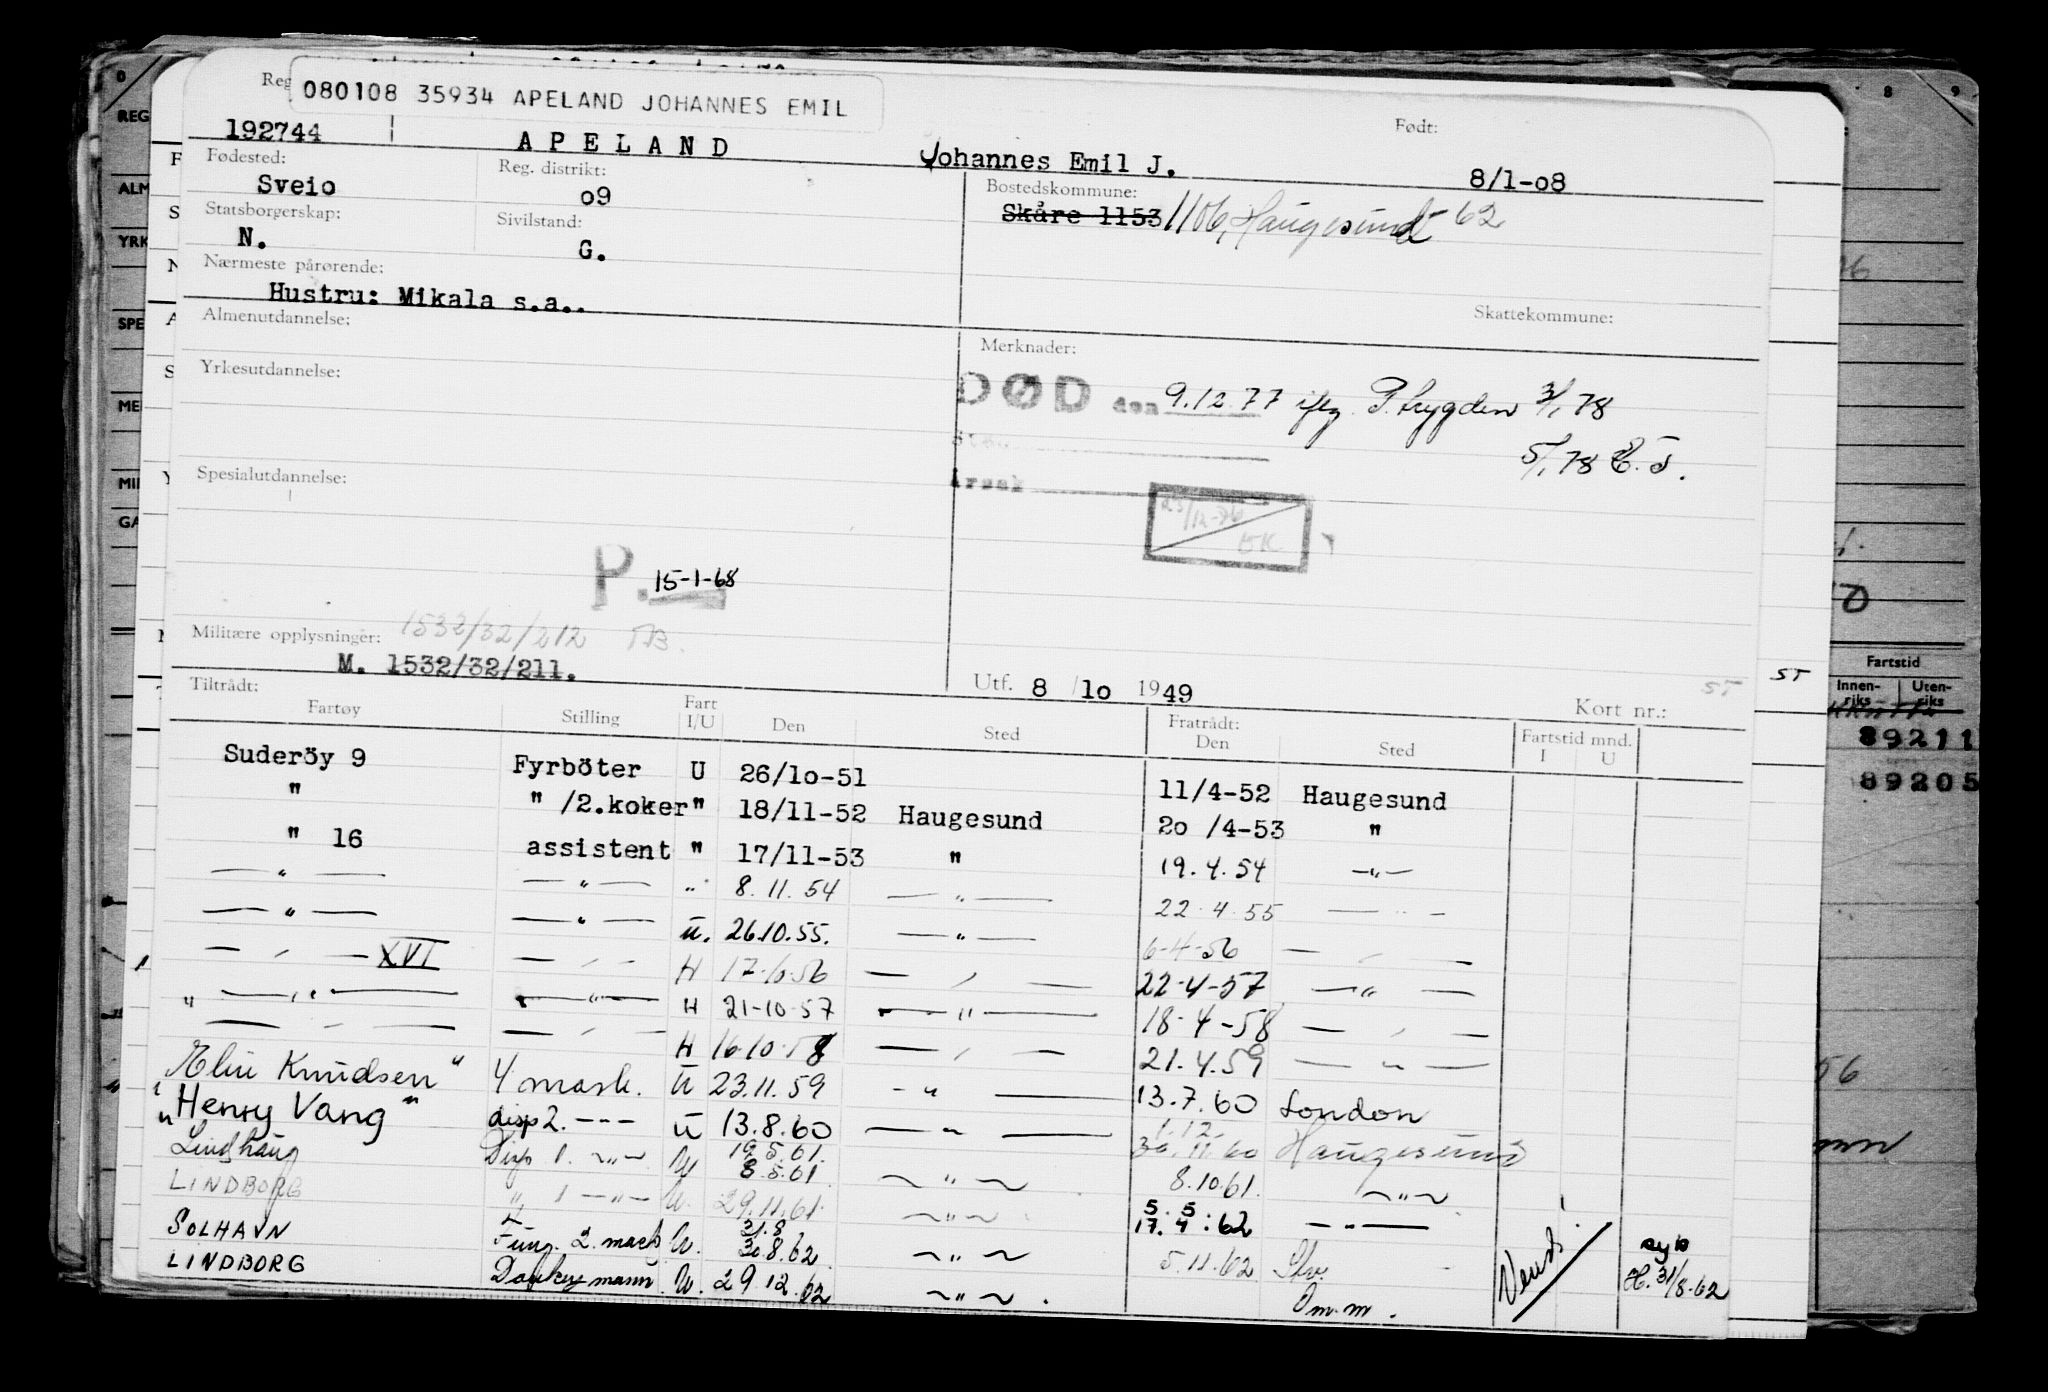 080108 35934 APELAND JOHANNES EMIL
Reg
Født:
192744 APELAND Johannes Emil J. 8/1-08
Fødested: Reg. distrikt: Bostedskommune:
Sveio o9 Skåre 1153 1106, Haugesund 62
Statsborgerskap: Sivilstand:
N. G.
Nærmeste pårørende:
Hustru: Mikala s.a..
Skattekommune:
Almenutdannelse: Merknader:
Yrkesutdannelse:
DØD den 9.12.77 iflg. P.trygden 3/1 78
5/1 78 E.J.
Årsak
Spesialutdannelse:
23/12-76
EK
P. 15-1-68
Militære opplysninger: 1532/32/212
M. 1532/32/211.
Utf. 8 / lo 1949
ST
ST
Kort nr.:
Tiltrådt: Fratrådt:
Fartøy Stilling Fart I/U Den Sted Den Sted Fartstid mnd. I U
Suderöy 9 Fyrböter U 26/lo-51 11/4-52 Haugesund
" " /2.koker " 18/11-52 Haugesund 2o /4-53 "
" 16 assistent " 17/11-53 " 19.4.54 — " —
— " — — " — " 8.11.54 — " — 22.4.55 — " —
— " — — " — U. 26.10.55. — " — 6-4-56 — " —
— " — XVI — " — H 17-10-56 — " — 22-4-57 — " —
" — " — — " — H 21-10-57 — " — 18-4-58 — " —
— " — — " — H 16.10.58 — " — 21.4.59 — " —
"Elin Knudsen" 4 mask. U 23.11.59 — " — 13.7.60 London
"Henry Vang" disp 2. --- U 13.8.60 — " — 1.12. 30.11.60 Haugesund
Lindhaug Disp 1. — " — U 19.5.61. 8.5.61. — " — 8.10.61. — " —
LINDBORG " 1 — " — U. 29.11.61. — " — 5.5. 17.4.62 — " —
SOLHAVN Fung. 2. mask U. 31.8 30.8.62. — " — 5.11.62 Stv.
LINDBORG Donkeymann. U. 29.12.62 — " — . Om.m.
Vend!
syk
H. 31/8-62
Fartstid
Innen-riks Uten-riks
89211
89205